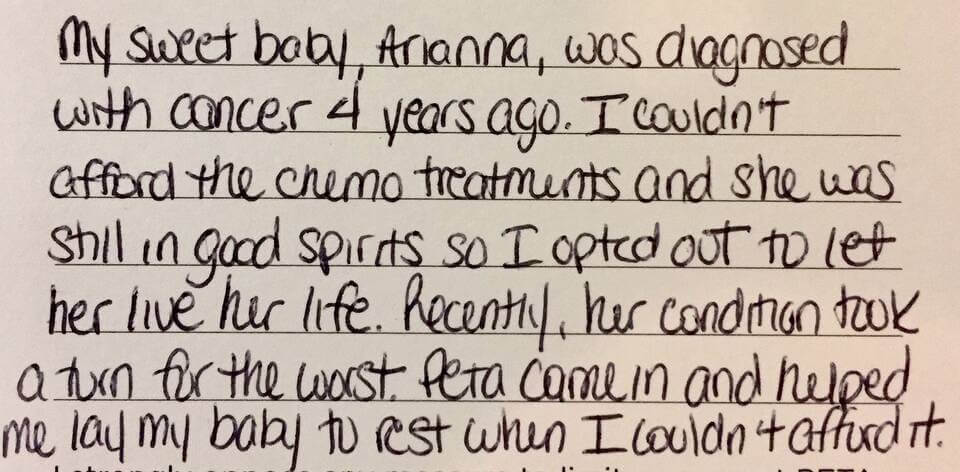 My sweet baby, Arianna, was diagnosed
with cancer 4 years ago. I couldn't
afford the chemo treatments and she was
still in good spirits so I opted out to let
her live her life. Recently, her condition took
a turn for the worst. Peta came in and helped
me lay my baby to rest when I couldn't afford it.